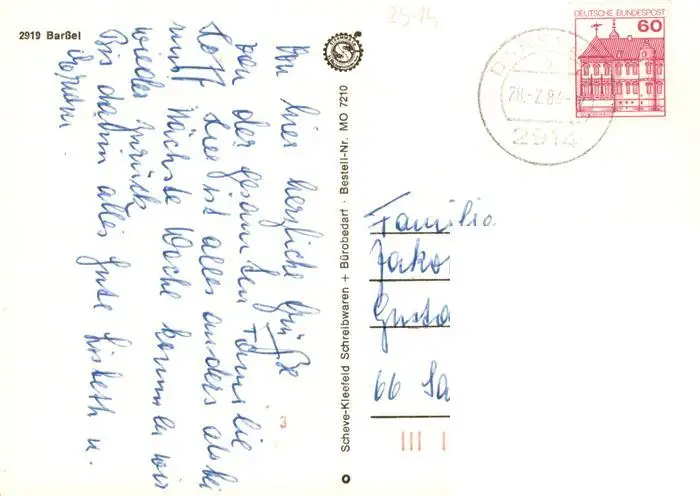 2919 Barßel
25.14
Von hier herzliche Grüße
von der gesamten Familie
Hoff hier ist alles anders als bei
uns Nächste Woche kommen wir
wieder zurück
Bis dahin alles Gute Lisbeth u.
Scheve-Kleefeld Schreibwaren + Bürobedarf · Bestell-Nr. MO 7210
DEUTSCHE BUNDESPOST
60
28.-2.8
2914
Familie
Jako
Gusta
66 Sa
3